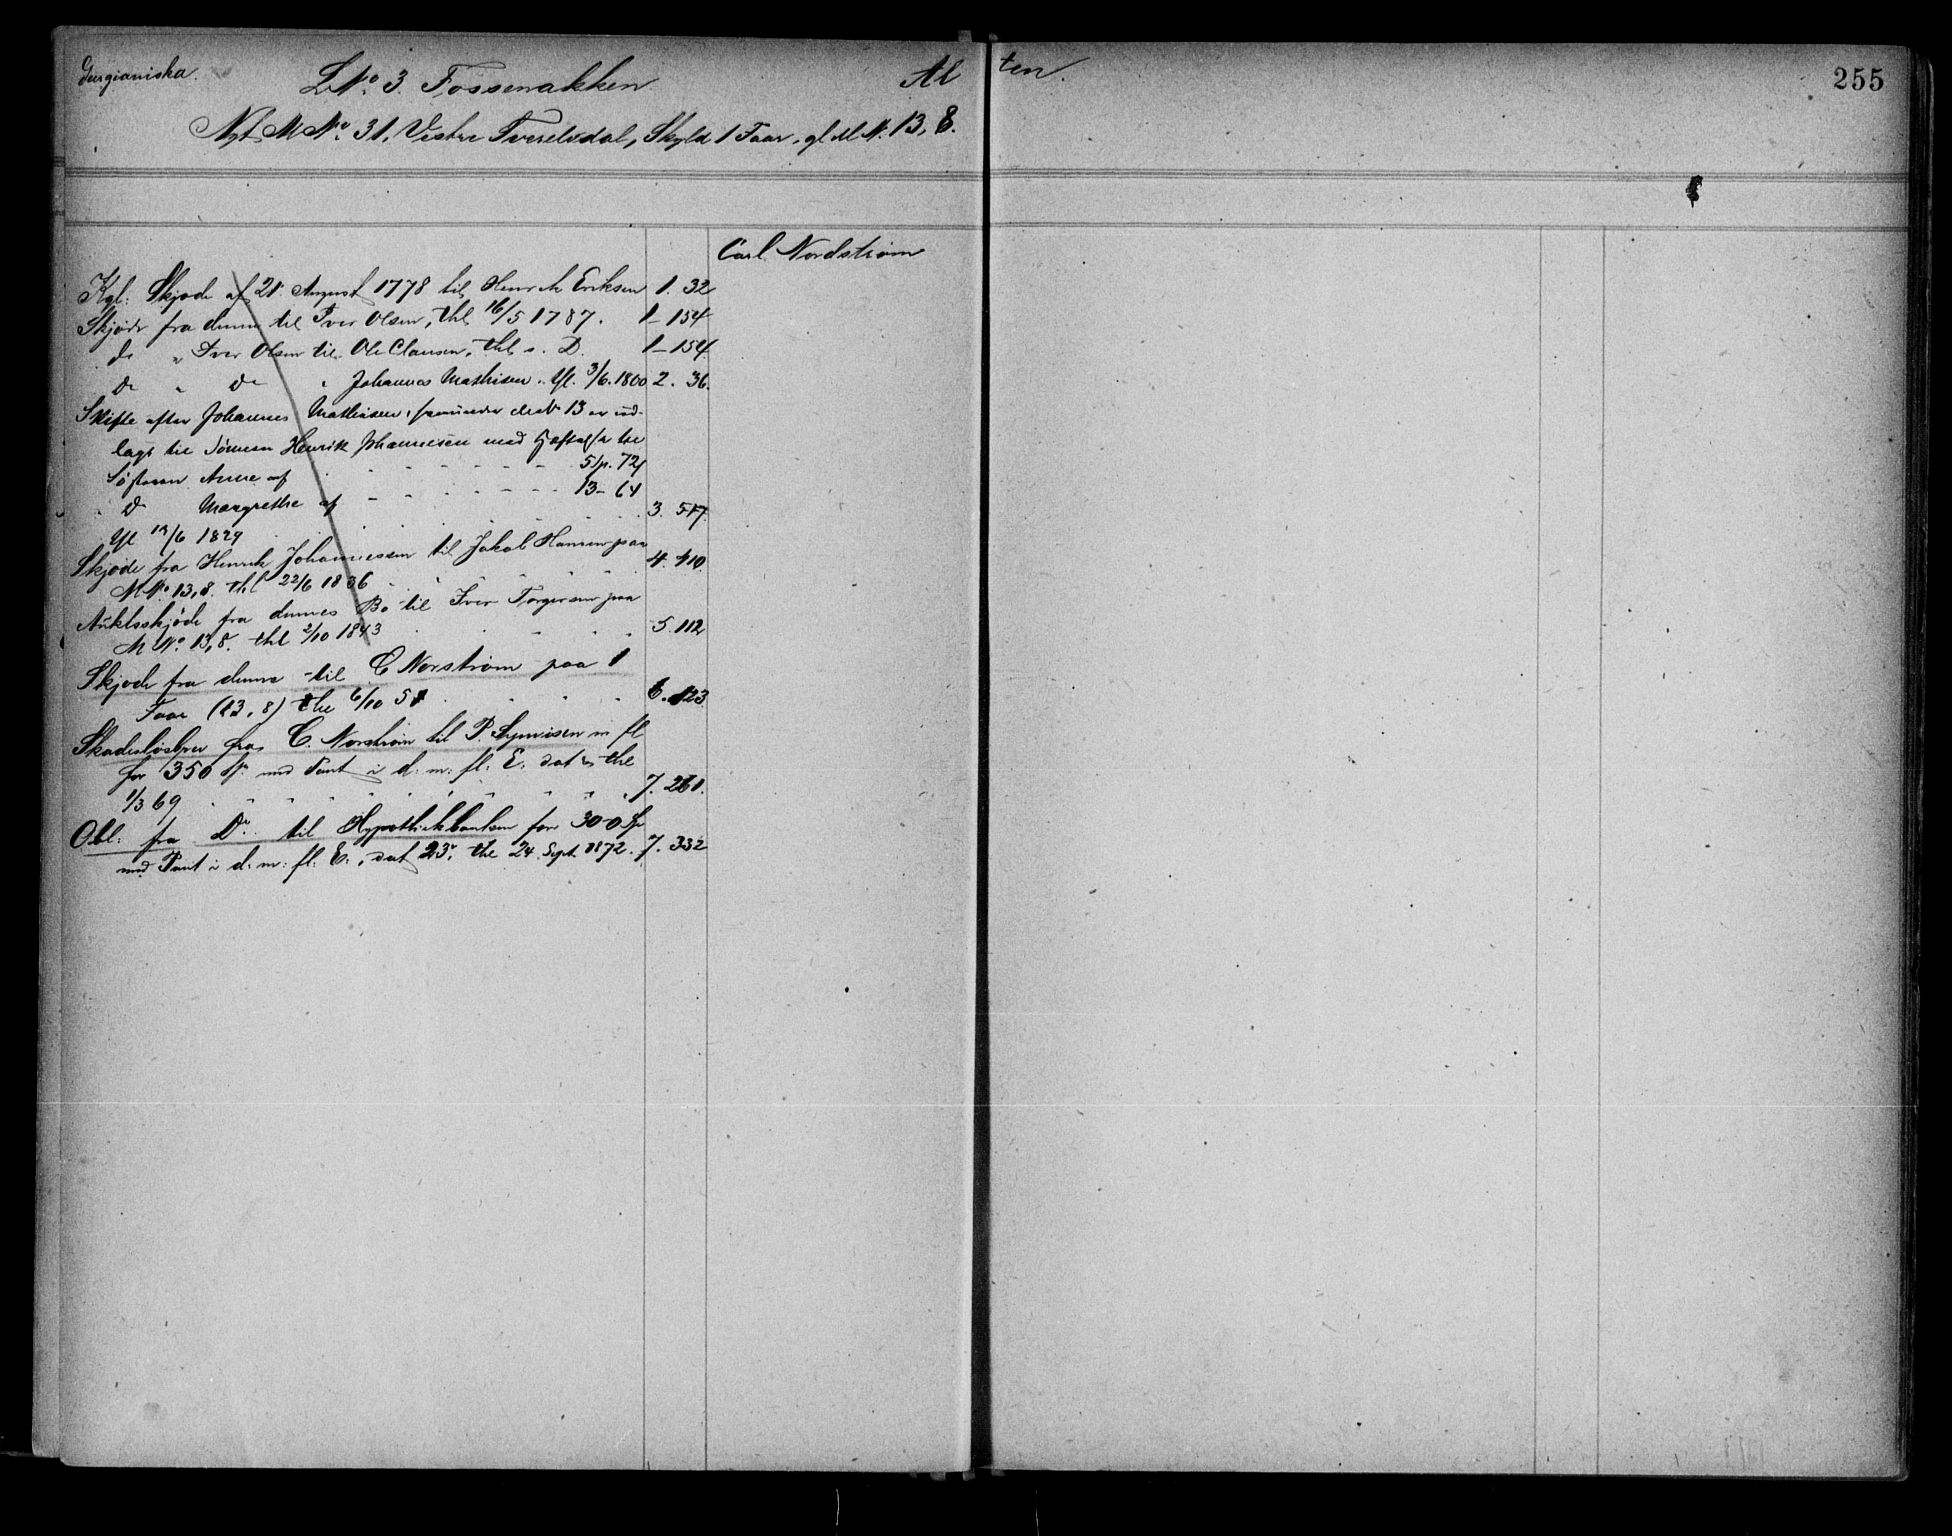 Gurgianiska.
LNo. 3. Fossenakken
Al ten.
255
Nyt M No. 31, Vestre Tverelvdal, Skyld 1 Faar, gl M N. 13, 8.
Carl Nordstrøm
Kgl: Skjøde af 21. August 1778 til Henrik Eriksen 1. 32
Skjøde fra denne til Iver Olsen, thl 16/5 1787. 1 - 154
do " Iver Olsen til Ole Clausen, thl s. D. 1 - 154
do " do " Johannes Mathisen. thl. 3/6. 1800 2. 36.
Skifte efter Johannes Mathisen, hvorunder MNo 13 er ud-
lagt til Sønnen Henrik Johannesen med Hæftelse til
Søsteren Anne af - - - - - - - 5 Sp. 72
do Margrethe af - - - - - - 13 - 64
thl 12/6 1829 3. 517.
Skjøde fra Henrik Johannessen til Jakob Hansen paa
M No. 13,8. thl 22/6 1836 4. 410.
Auktsskjøde fra dennes Bo til Iver Torgersen paa
M No. 13,8. thl 2/10 1843 5. 112
Skjøde fra denne til C Norstrøm paa 1
Faar (13,8) thl 6/10 51 6. 123
Skadesløsbrev fra C. Norstrøm til P. m fl
for 350 Sp. med Pant i d: m: fl: E: dat & thl
1/3 69 7. 261.
Obl: fra Do. til Hypothekbanken for 300 Sp
med Pant i d: m: fl: E:, dat 23., thl 24 Sept 1872. 7. 332